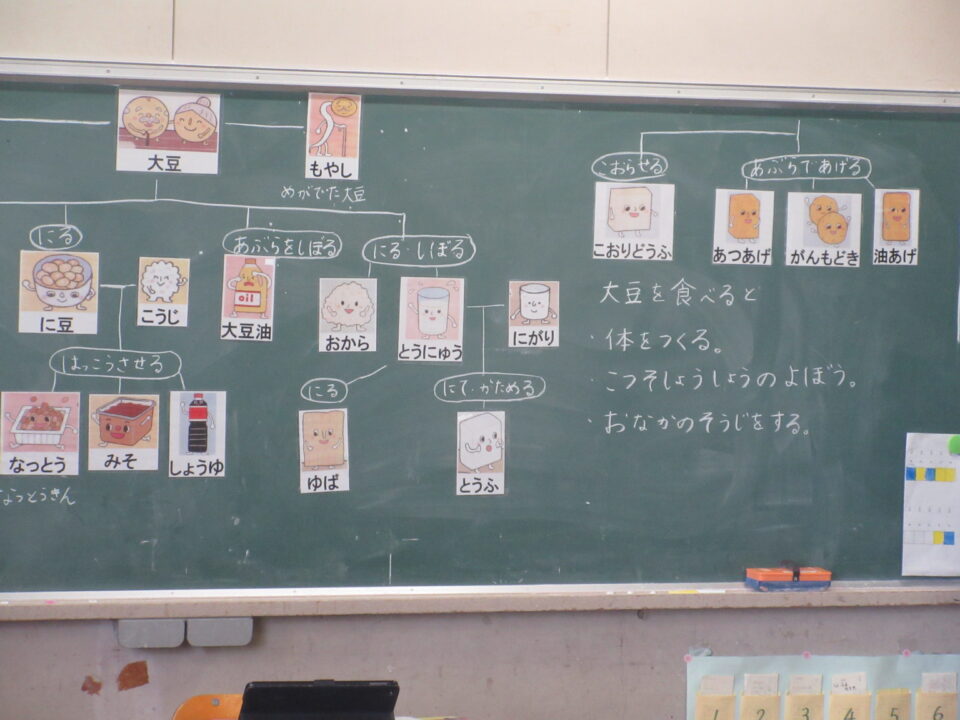 大豆
もやし
めがでた大豆
にる
あぶらをしぼる
にる・しぼる
に豆
こうじ
大豆油
oil
おから
とうにゅう
にがり
はっこうさせる
にる
にて・かためる
なっとう
みそ
しょうゆ
ゆば
とうふ
なっとうきん
こおらせる
あぶらであげる
こおりどうふ
あつあげ
がんもどき
油あげ
大豆を食べると
・体をつくる。
・こつそしょうしょうのよぼう。
・おなかのそうじをする。
1
2
3
4
5
6